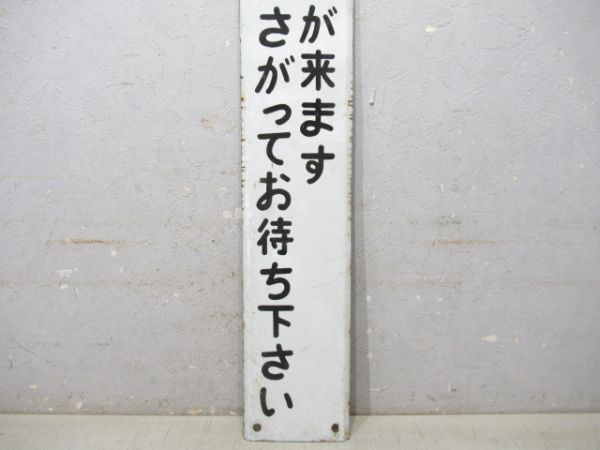 が来ます
さがってお待ち下さい